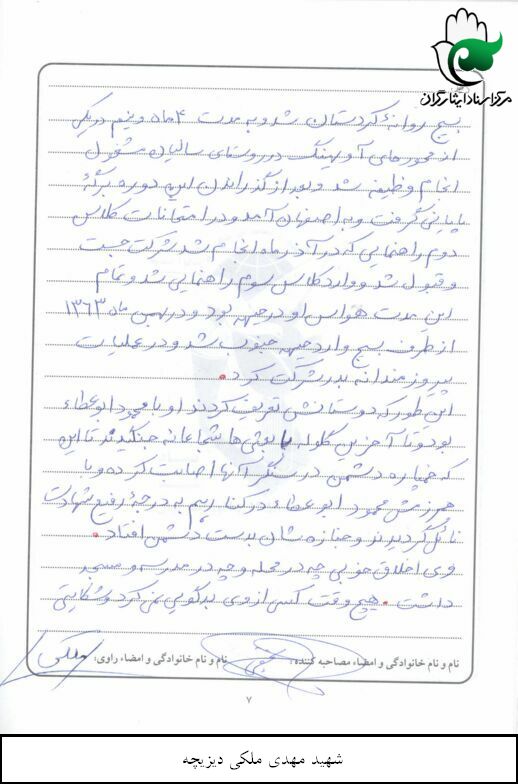 مرکز اسناد ایثارگران
بسیج روانهٔ کردستان شد و به مدت ۴ ماه و نیم در یکی
از محورهای آویهنگ در روستای سالیان مشغول
انجام وظیفه شد و بعد از گذراندن این دوره برگهٔ
پایانی گرفت و به اصفهان آمد و در امتحانات کلاس
دوم راهنمایی که در آذر ماه انجام شد شرکت جست
و قبول شد و وارد کلاس سوم راهنمایی شد و تمام
این مدت هواس او در جبهه بود و در بهمن ماه ۱۳۶۳
از طرف بسیج وارد جبهه جنوب شد و در عملیات
پیروزمندانه بدر شرکت کرد.
این طور که دوستانش تعریف کردند او با محمود ابوعطاء
بود و تا آخرین گلوله با بعثی‌ها شجاعانه جنگیدند تا این
که خمپاره دشمن در سنگر آنها اصابت کرده و با
همرزمش محمود ابوعطاء در کنار هم به درجهٔ رفیع شهادت
نائل گردیدند و جنازه‌شان بدست دشمن افتاد.
وی اخلاق خوبی چه در محله و چه در مدرسه و مسجد
داشت. هیچ وقت کسی از وی بدگویی نمی‌کرد و شکایتی
نام و نام خانوادگی و امضاء مصاحبه کننده: نام و نام خانوادگی و امضاء راوی: ملکی
۷
شهید مهدی ملکی دیزیچه